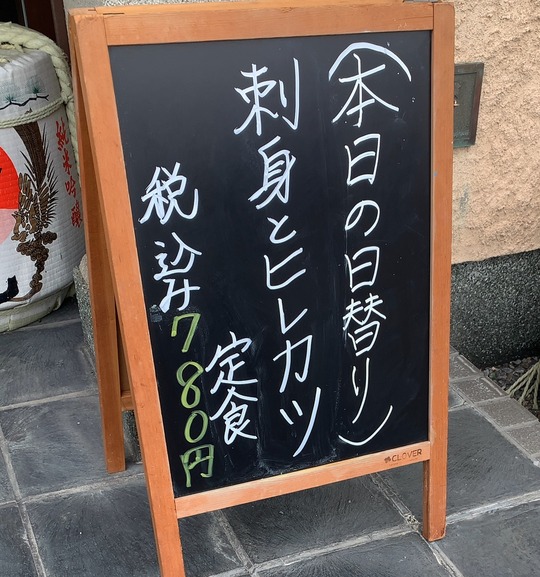 (本日の日替り)
刺身とヒレカツ
定食
税込み780円
CLOVER
純米吟醸